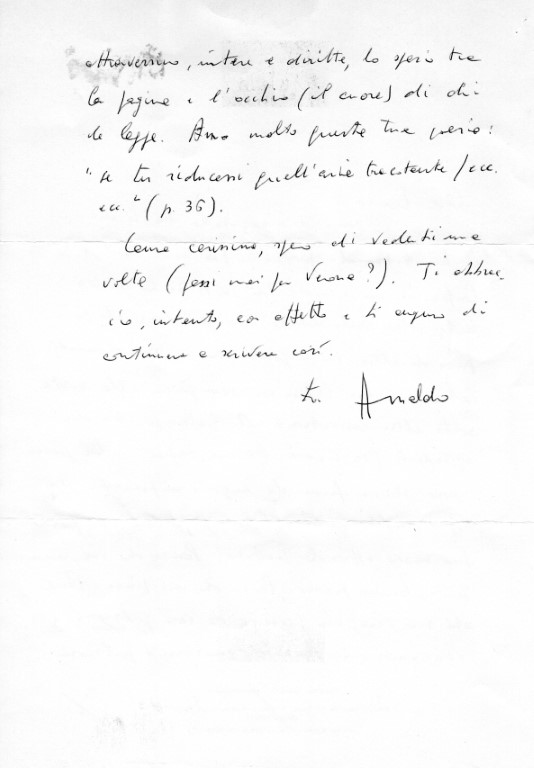 attraversino, intere e diritte, lo spazio tra
la pagina e l'occhio (il cuore) di chi
le legge. Amo molto questa tua poesia:
"se tu riducessi quell'aria tracotante / ecc.
ecc." (p. 36).
carissima, spero di vederti una
volta (passi mai per Verona?). Ti abbrac-
cio, intanto, con affetto e ti auguro di
continuare a scrivere così.
tuo Arnaldo